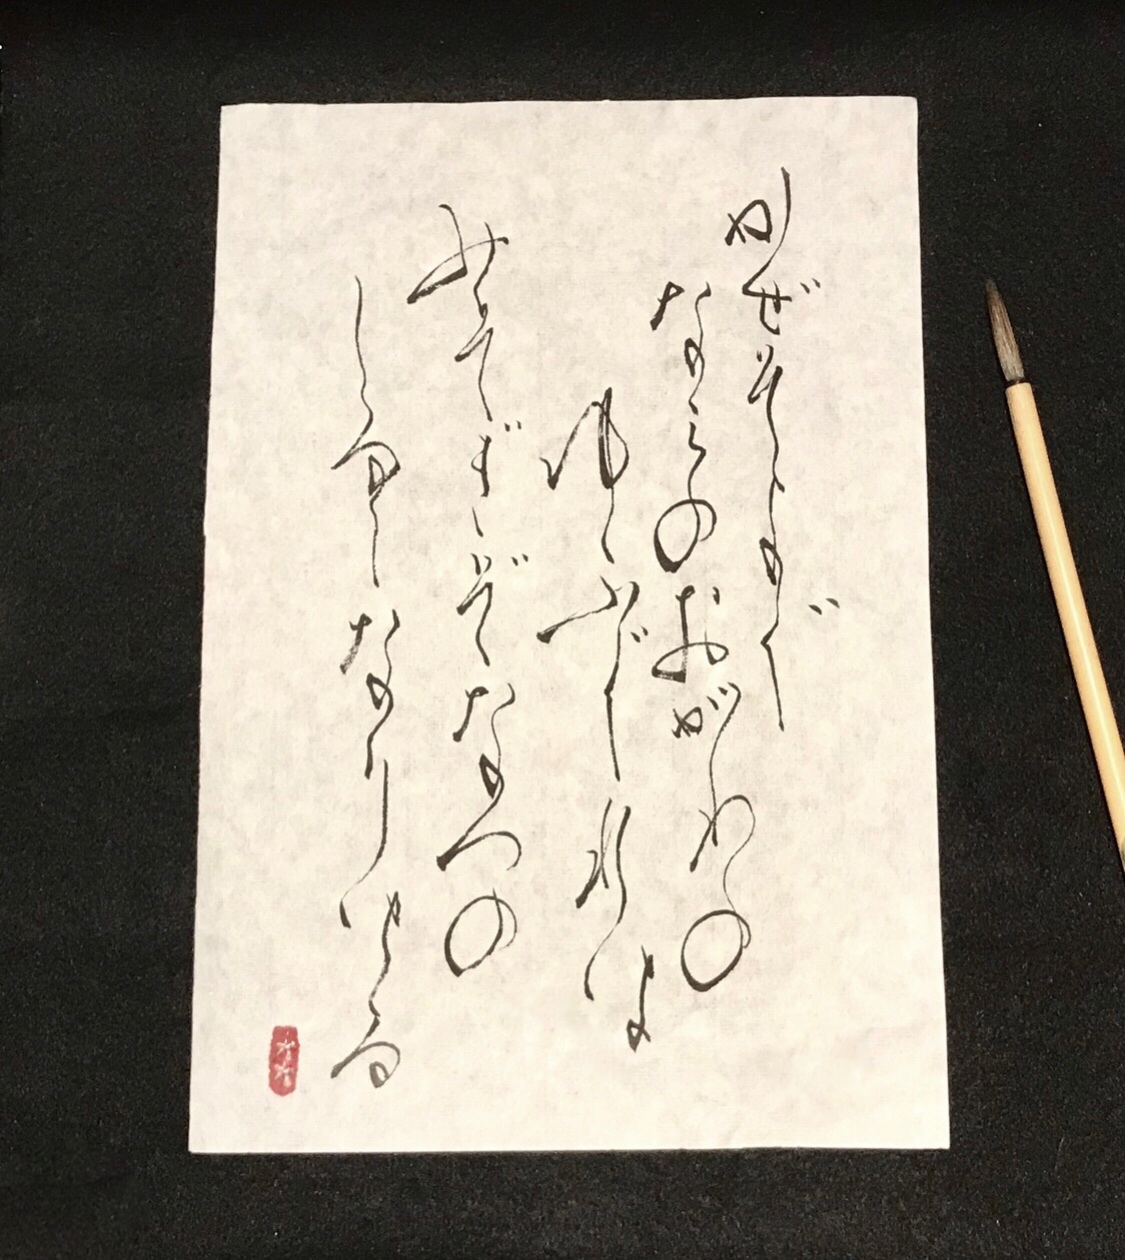 かぜそよぐ
ならのおがわの
ゆふぐれは
みそぎぞなつの
しるしなりける